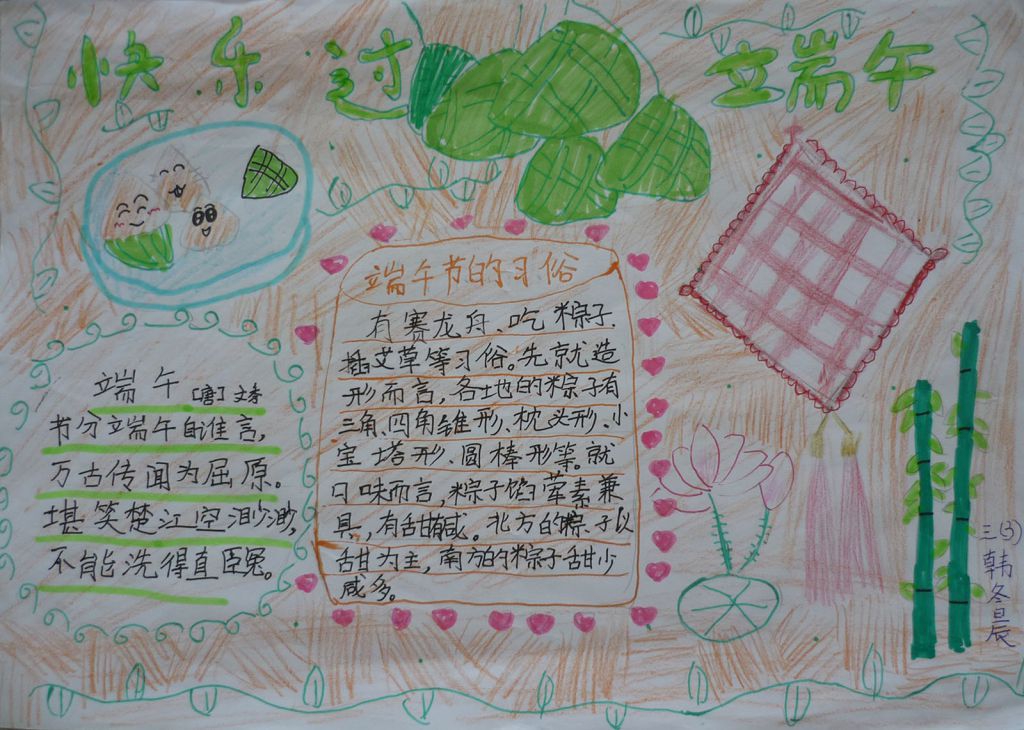 快乐过端午
端午 [唐] 文秀
节分端午自谁言,
万古传闻为屈原。
堪笑楚江空渺渺,
不能洗得直臣冤。
端午节的习俗
有赛龙舟、吃粽子、
插艾草等习俗。先就造
形而言,各地的粽子有
三角、四角锥形、枕头形、小
宝塔形、圆棒形等。就
口味而言,粽子馅荤素兼
具,有甜有咸。北方的粽子以
甜为主,南方的粽子甜少
咸多。
三(3)
韩冬辰